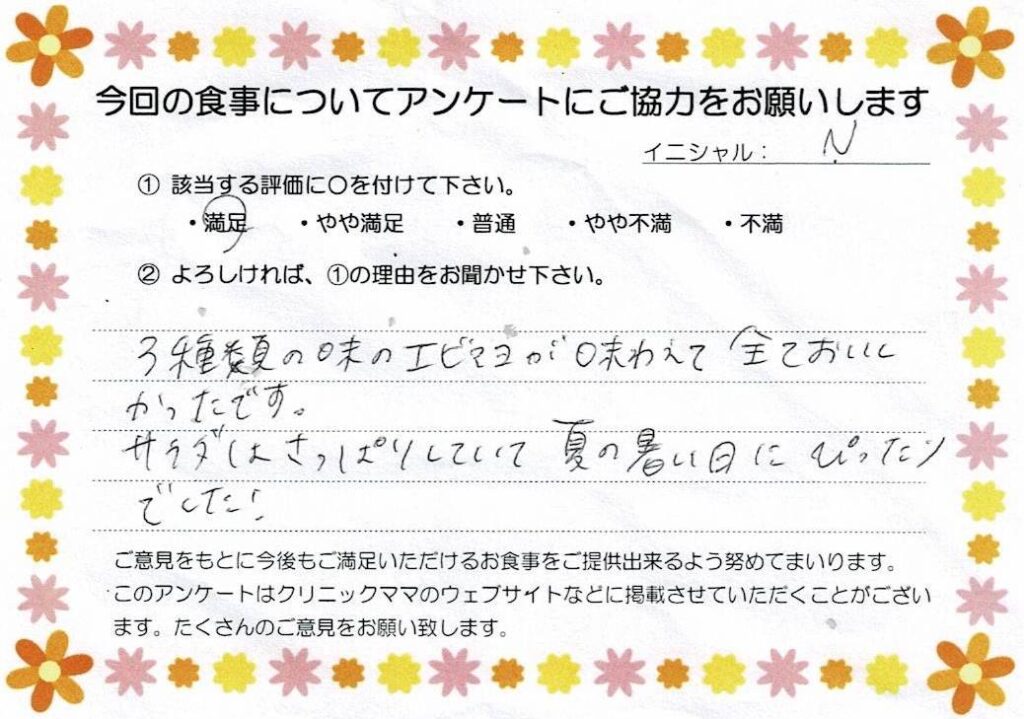 今回の食事についてアンケートにご協力をお願いします
イニシャル： N
① 該当する評価に〇を付けて下さい。
・満足 ・やや満足 ・普通 ・やや不満 ・不満
② よろしければ、①の理由をお聞かせ下さい。
3種類の味のエビマヨが味わえて 全ておいし
かったです。
サラダはさっぱりしていて 夏の暑い日に ぴったり
でした!
ご意見をもとに今後もご満足いただけるお食事をご提供出来るよう努めてまいります。
このアンケートはクリニックママのウェブサイトなどに掲載させていただくことがござい
ます。たくさんのご意見をお願い致します。